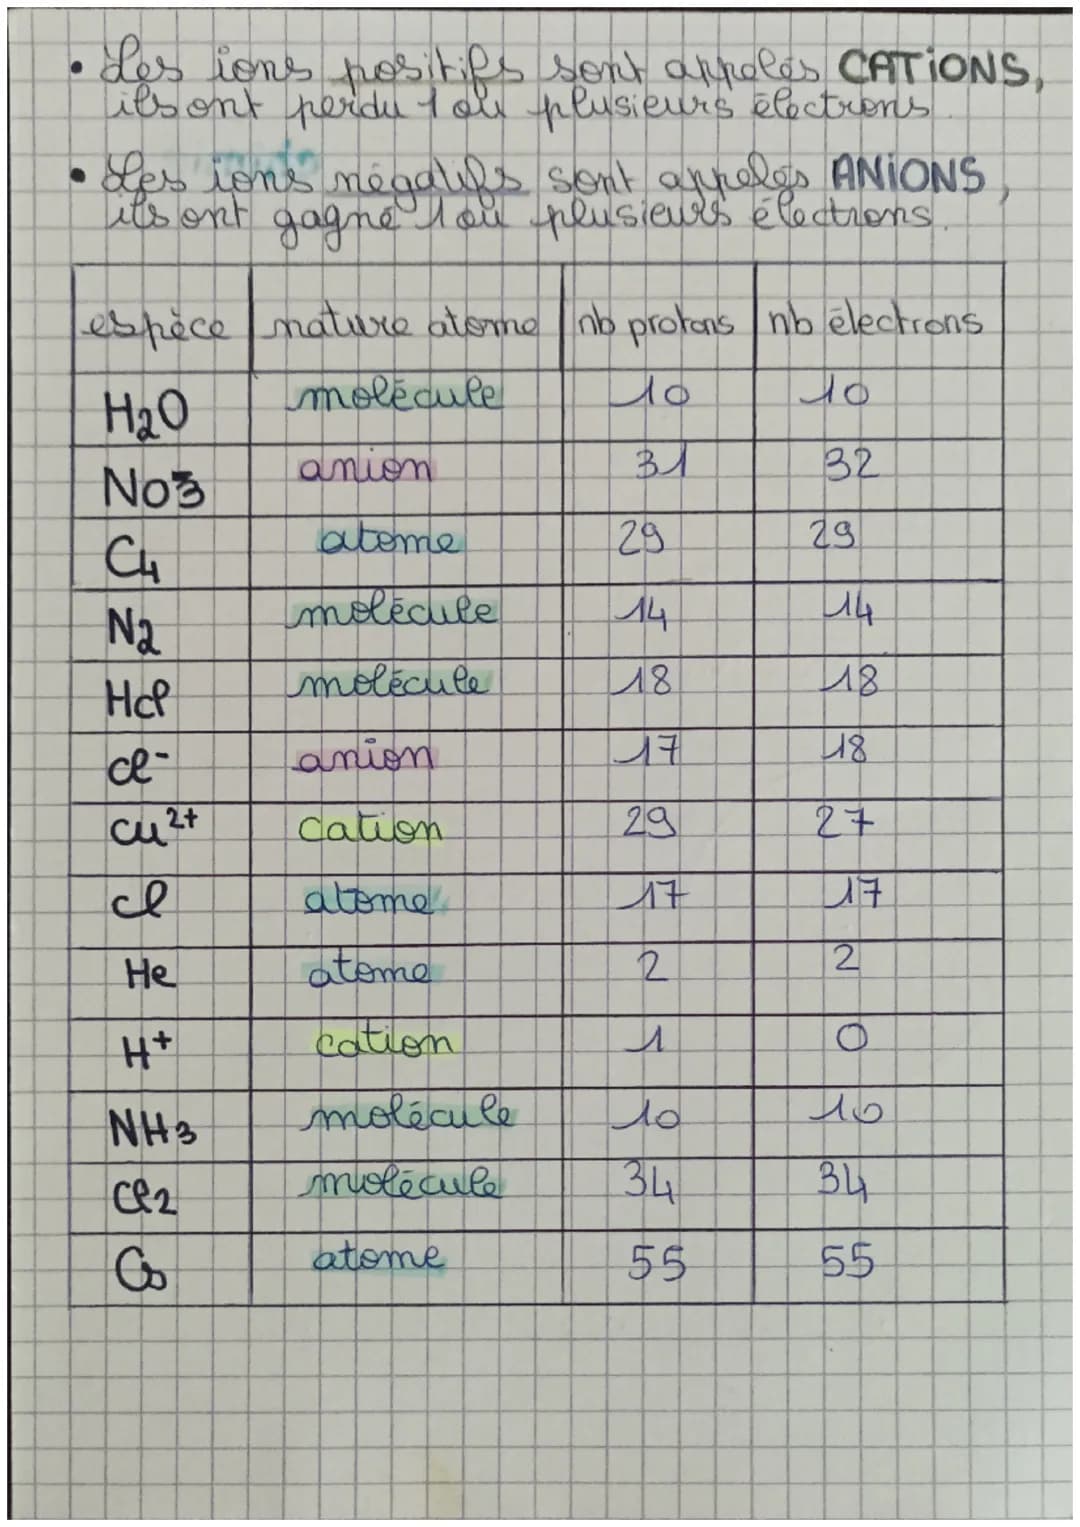 • Les ions positifs sont appelés CATIONS,
ils ont perdu 1 ou plusieurs électrons.
• Les ions négatifs sont appelés ANIONS,
ils ont gagné 1 ou plusieurs électrons.
espèce nature atome nb protons nb électrons
H2O molécule 10 10
NO3 anion 31 32
Cu atome 29 29
N2 molécule 14 14
Hcl molécule 18 18
cl- anion 17 18
cu2+ cation 29 27
cl atome 17 17
He atome 2 2
H+ cation 1 0
NH3 molécule 10 10
Cl2 molécule 34 34
Cs atome 55 55